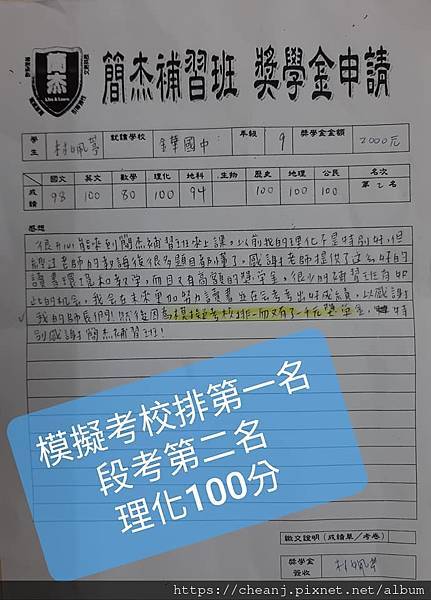 簡杰
Live & Learn
簡杰補習班 獎學金申請
學生 就讀學校 金華國中 年級 9 獎學金金額 2000元
國文 英文 數學 理化 地科 生物 歷史 地理 公民 名次
成績 98 100 80 100 94 100 100 100 第2名
感想
很開心能來到簡杰補習班來上課。以前我的理化不是特別好,但
經過老師的教講後很多題目都懂了。感謝老師提供了這麼好的
讀書環境和教學,而且又有高額的獎學金,很少的補習班有如
此的机会,我会在未來更加努力讀書並在会考考出好成績,以感謝
我的師長們!然後因為模擬考校排一而又有了一千元獎學金,特
別感謝簡杰補習班!
模擬考校排第一名
段考第二名
理化100分
繳交證明(成績單/考卷)
獎學金簽收
https://cheanj.pixnet.net/album